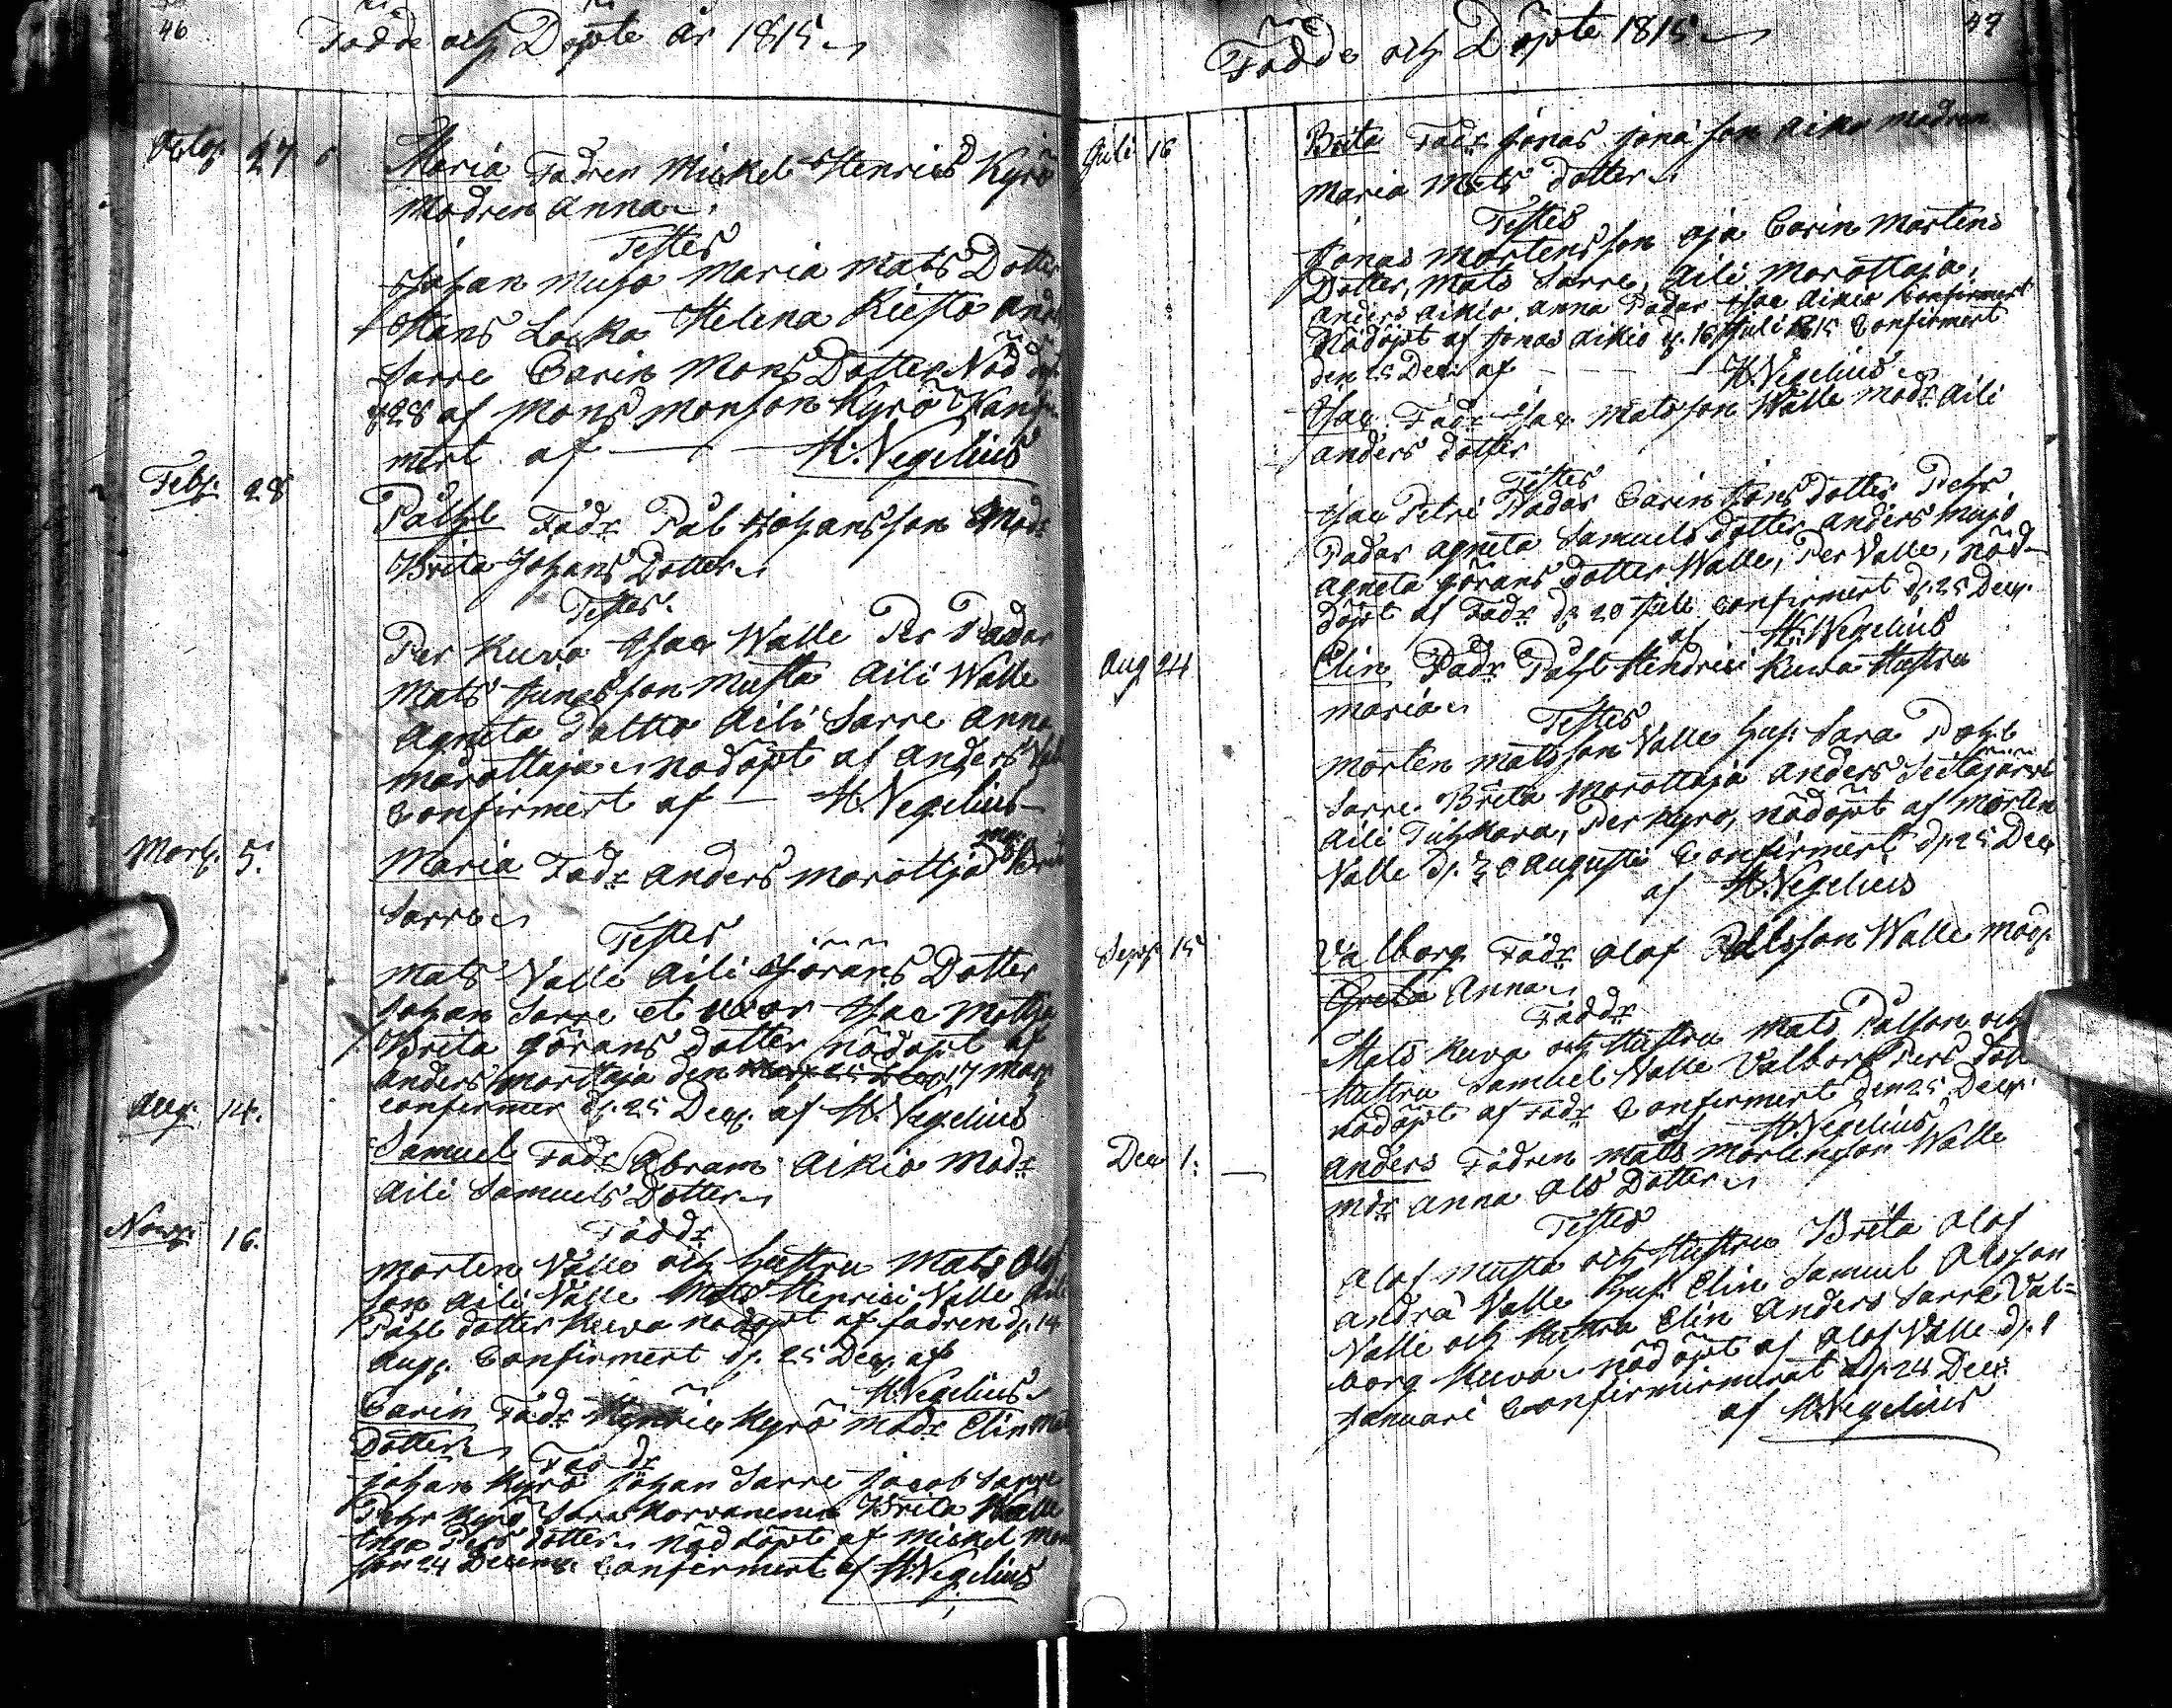 46
Födde och Döpte år 1815
27
Maria Fadren Mickel Henrics Kyrö
Modren Anna
Testes
Johan Musta Maria Mats Dotter
Hans Helena Kiesto And
Sarre Carin Mons Dotter Nöd
d. 28 af Mons Monson Kyrö Konfir
mert af — — H: Wegelius
Feb. 28
Påhl Fadr Pål Johansson Modr
Brita Johans Dotter
Testes
Per Kuva Isac Walle Per Padar
Mats Jonasson Musta Aili Walle
Agneta Aili Sarre Anna
Morottaja nödöpt af Anders
Confirmert af — H. Wegelius
Mars 5.
Maria Fadr Anders Morottja
Sarre
Testes
Mats Valle Aili Görans Dotter
Johan Sarre et uxor Isac
Brita Görans dotter nödöpt af
Anders den 17 Mars
confirmer d. 25 Dec. af H. Wegelius
Aug. 14.
Samuel Fadr Abram Aikio Modr
Aili Samuels Dotter
Faddr
Morten Valle och hustru Mats Olof
son Aili Valle Mats Henrici Valle Aili
Påhl dotter Kuwa nödöpt af fadren d. 14
Aug. Confirmert d. 25 Dec. af
H. Wegelius
Nov. 16.
Carin Fadr Henric Kyrö Modr Elin Mats
Dotter
Faddr
Johan Kyrö Johan Sarre Jacob Sarre
Pehr Kyrö Sara Korvanenen Brita Walle
Inga Pers dotter nöddöpt af Mickel Mon
son 24 Decemr Confirmert af H. Wegelius
47
Födde och Döpte 1815
Juli 16
Brita Fadr Jonas Jona son Aikio Modren
Maria Mats dotter
Testes
Jonas Mortensson Aja Carin Mortens
Dotter, Mats Sarre, Aili Morottaja,
Anders Aikio, Anna Padar Isac Aikio
Nödöpt af Jonas Aikio d. 16 Juli 1815 Confirmert
den 25 Dec. af — — — H. Wegelius
Isac Fadr Isac Matsson Walle Modr Aili
Anders dotter
Testes
Isac Petri Padar Carin Jöns dotter Pehr
Padar Agneta Samuels dotter Anders
Agneta Görans dotter Walle, Per Valle, nöd-
döpt af Fadr d. 20 Juli Confirmert d. 25 Dec.
af H. Wegelius
Aug 24
Elin Fadr Påhl Hendrici Kuwa Hustru
Maria
Testes
Morten Matsson Valle hus. Sara Pahl
Sarre. Brita Morottaja Anders
Aili Per Kyrö, nödöpt af Morten
Valle d. 30 Augusti Confirmert d. 25 Dec
af H. Wegelius
Sept. 15
Valborg Fadr Olof Walle Modr
Greta Anna
Faddr
Mats Kuva och Hustru Mats Pålson och
Hustru Samuel Valle Valborg Pers dott
nödöpt af Fadr Confirmert den 25 Dec.
af H. Wegelius
Dec 1.
Anders Fadren Mats Mortensson Walle
Mdr Anna Ols Dotter
Testes
Olof Musta och Hustru Brita Olof
Andra Valle hus. Elin Samuel Olsson
Valle och Hustru Elin Anders Sarre Val=
borg Kuva nödöpt af Olof Valle d. 1
Januari Confirmirmerat d. 24 Dec.
af H. Wegelius